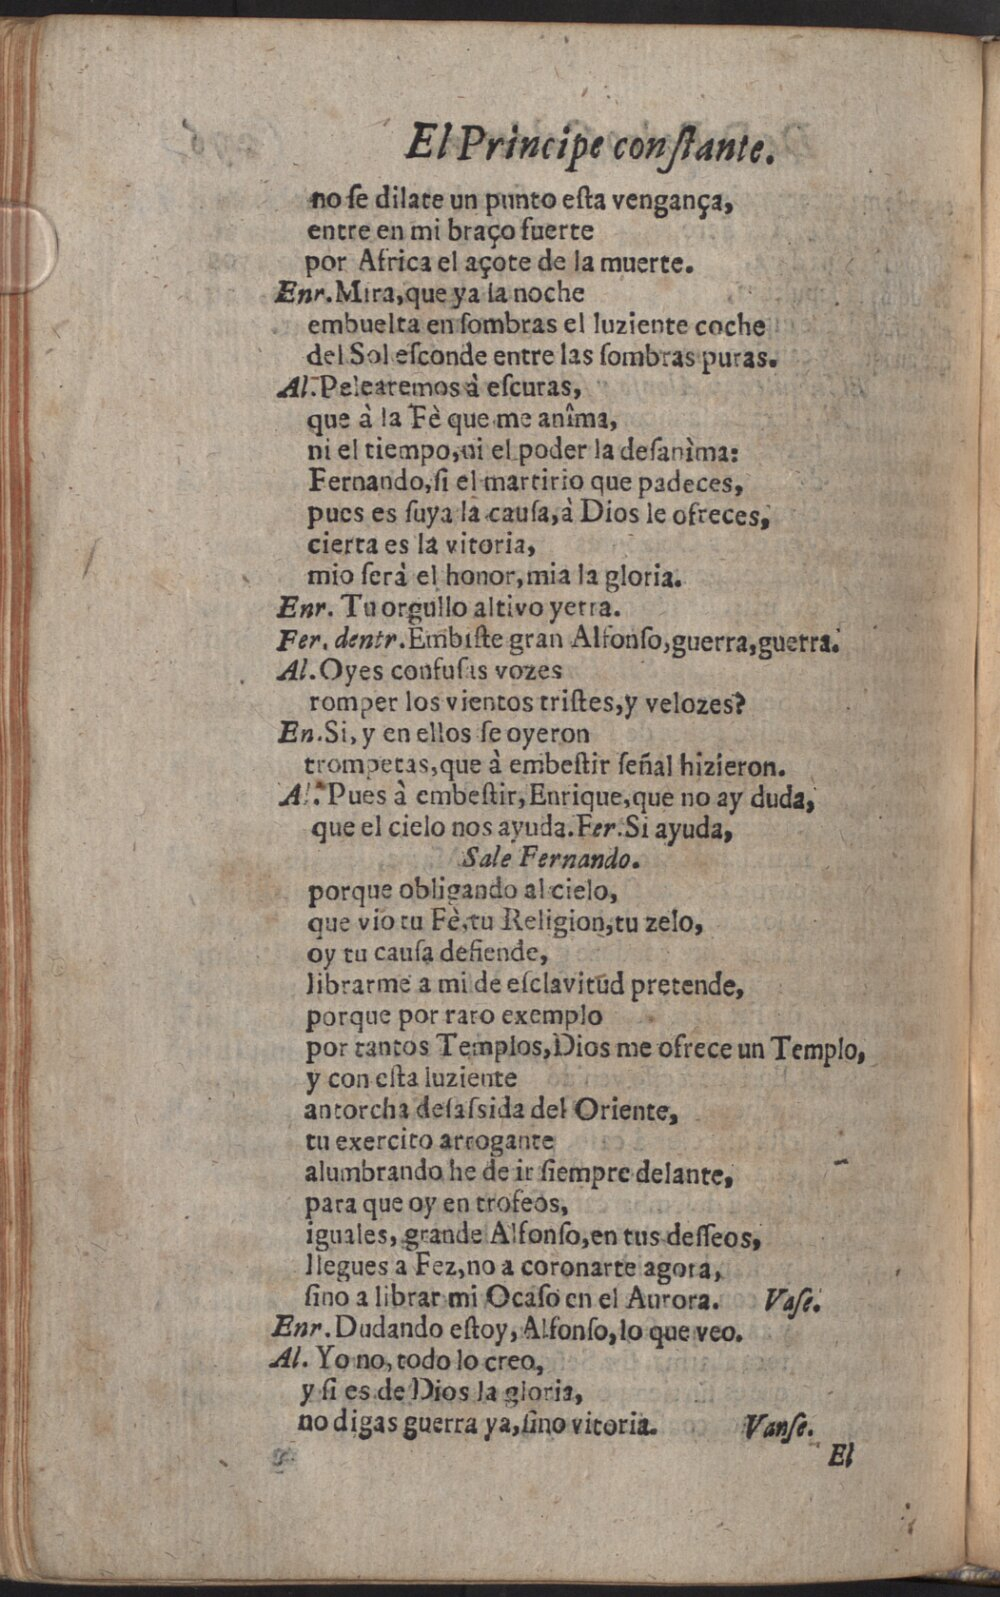 El Principe conſtante.
no ſe dilate un punto eſta vengança,
entre en mi braço fuerte
por Africa el açote de la muerte.
Enr. Mira, que ya la noche
embuelta en ſombras el luziente coche
del Sol eſconde entre las ſombras puras.
Al. Pelearemos à eſcuras,
que à la Fè que me anîma,
ni el tiempo, ni el poder la deſanìma:
Fernando, ſi el martirio que padeces,
pues es ſuya la cauſa, à Dios le ofreces,
cierta es la vitoria,
mio ſerà el honor, mia la gloria.
Enr. Tu orgullo altivo yerra.
Fer. dentr. Embiſte gran Alfonſo, guerra, guerra.
Al. Oyes confuſas vozes
romper los vientos triſtes, y velozes?
En. Si, y en ellos ſe oyeron
trompetas, que à embeſtir ſeñal hizieron.
Al. Pues à embeſtir, Enrique, que no ay duda,
que el cielo nos ayuda. Fer. Si ayuda,
Sale Fernando.
porque obligando al cielo,
que vio tu Fè, tu Religion, tu zelo,
oy tu cauſa defiende,
librarme a mi de eſclavitud pretende,
porque por raro exemplo
por tantos Templos, Dios me ofrece un Templo,
y con eſta luziente
antorcha deſaſsida del Oriente,
tu exercito arrogante
alumbrando he de ir ſiempre delante,
para que oy en trofeos,
iguales, grande Alfonſo, en tus deſſeos,
llegues a Fez, no a coronarte agora,
ſino a librar mi Ocaſo en el Aurora. Vaſe.
Enr. Dudando eſtoy, Alfonſo, lo que veo.
Al. Yo no, todo lo creo,
y ſi es de Dios la gloria,
no digas guerra ya, ſino vitoria. Vanſe.
El